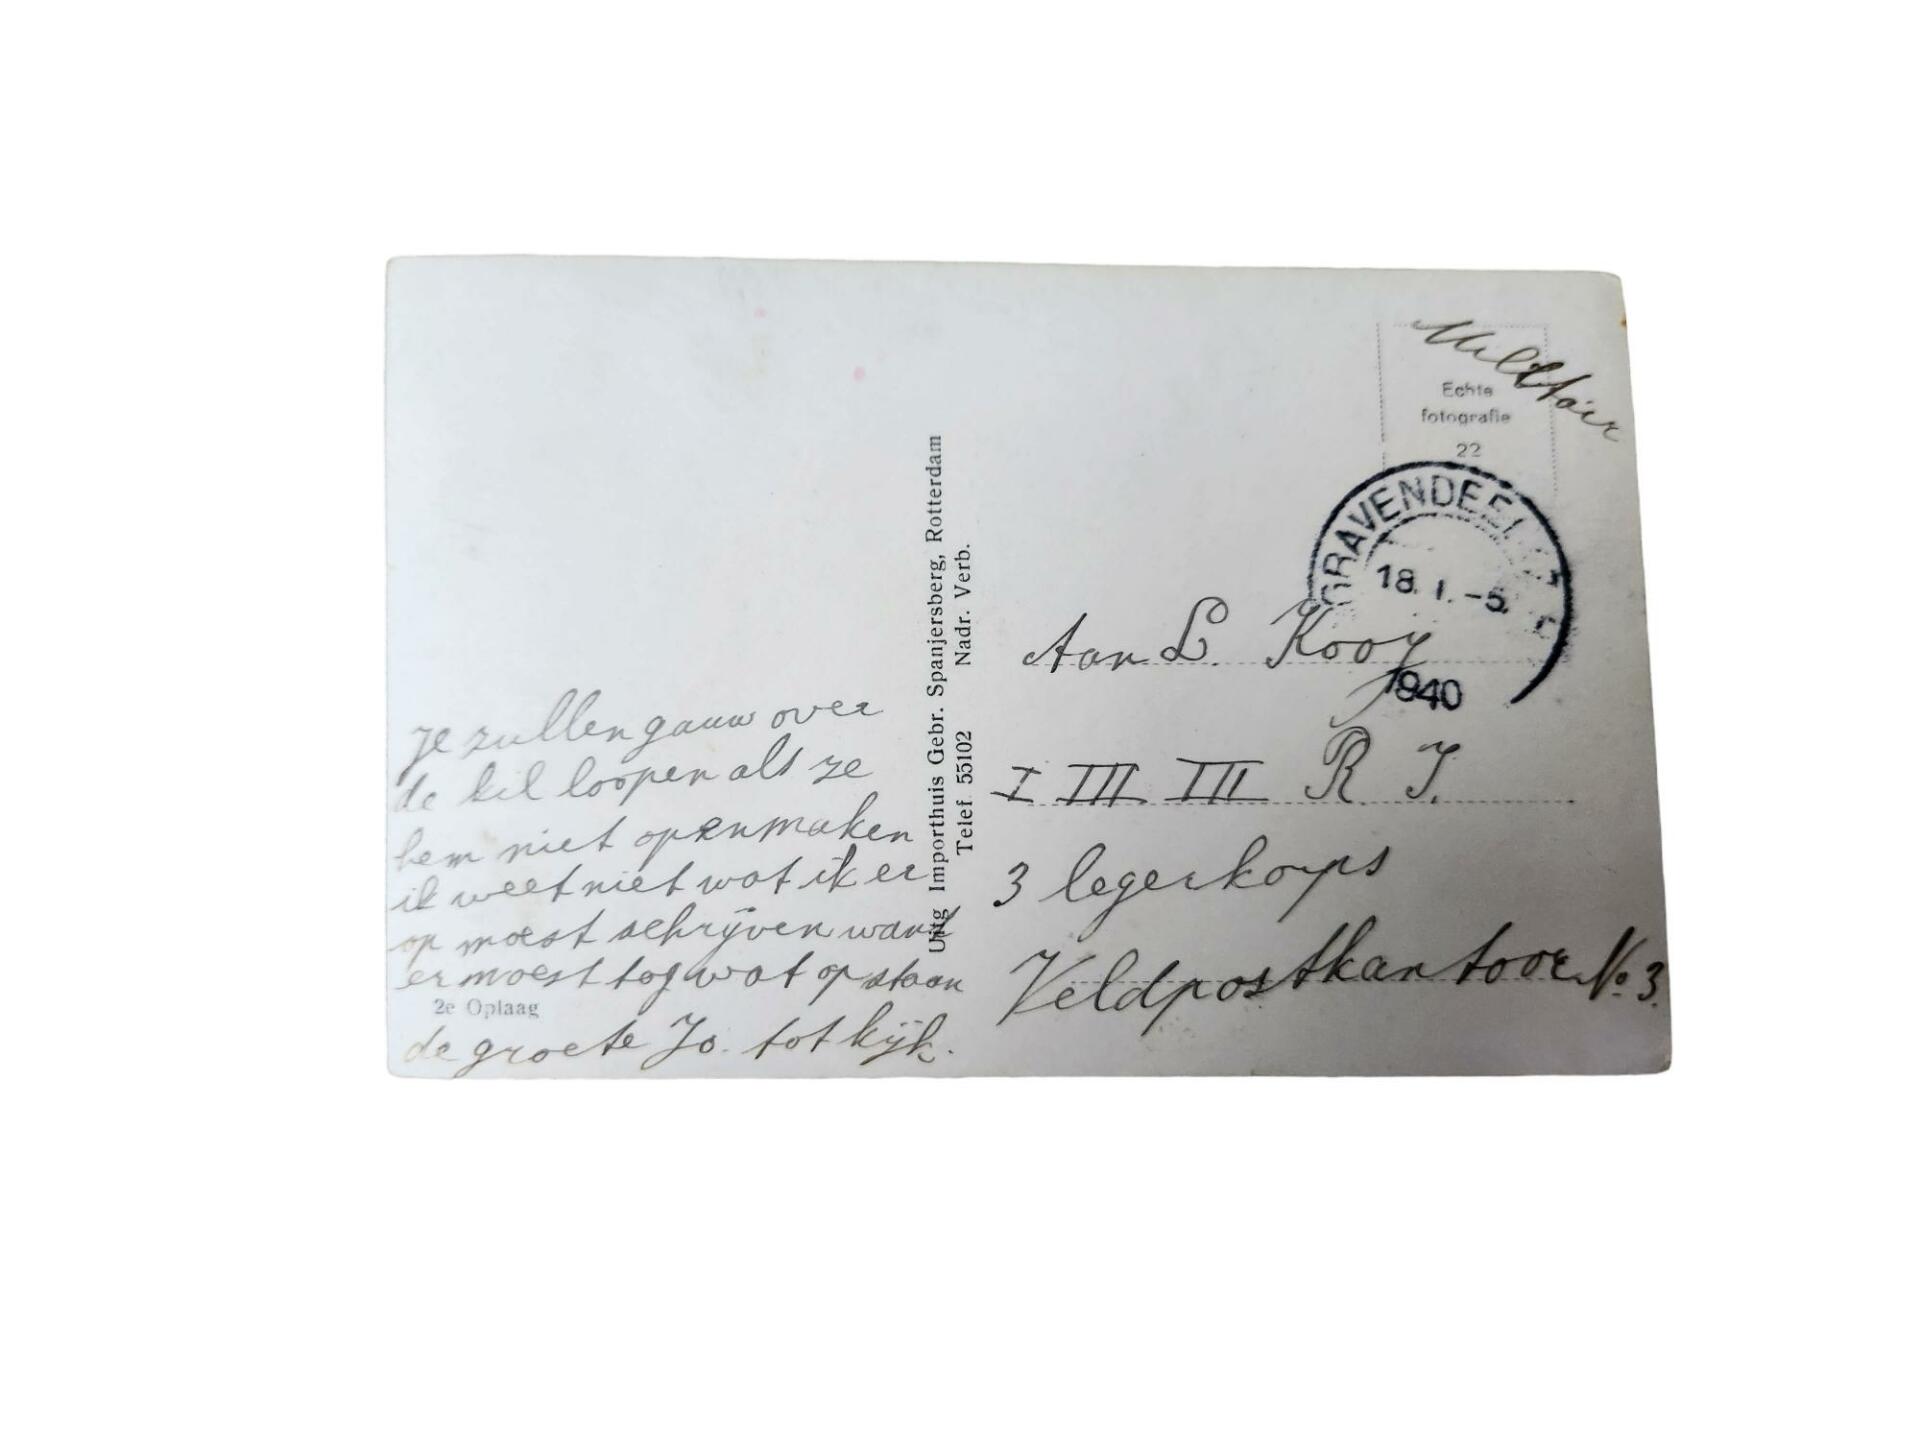 je zullen gauw over
de kil loopen als ze
hem niet openmaken
ik weet niet wat ik er
op moest schrijven want
er moest tog wat op staan
2e Oplaag
de groete Jo. tot kijk.
Uitg Importhuis Gebr. Spanjersberg, Rotterdam
Telef. 55102 Nadr. Verb.
Militair
Echte
fotografie
22
GRAVENDEEL
18. 1. -5.
1940
Aan L. Kooy
I III III R. I.
3 legerkorps
Veldpostkantoor No 3.